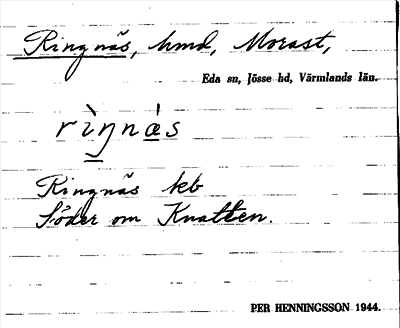 Ringnäs, hmd, Morast,
Eda sn, Jösse hd, Värmlands län.
rìŋnǽs
Ringnäs kb
Söder om Knatten.
PER HENNINGSSON 1944.